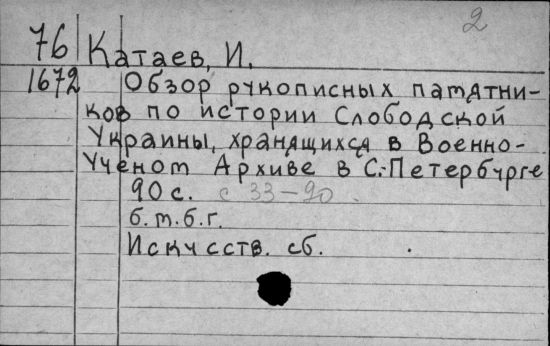 2
76 Катаев, И.
1672 Обзор рукописных памятни-
ков по истории Слободской
Украины, хранящихся в Военно-
Ученом Архиве в С.-Петербурге
90 с. с 33-90.
б.м.б.г.
Искусств. сб.